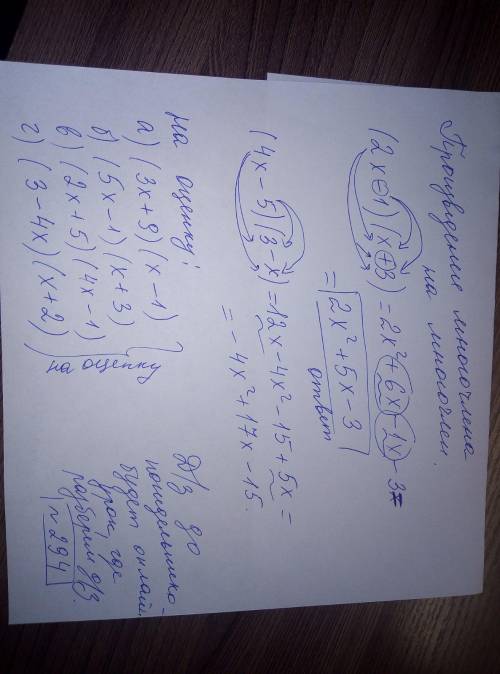 Произведение многочлена
на многочлен.
(2x-1)(x+3) = 2x²+6x-1x-3=
= 2x²+5x-3
ответ
(4x-5)(3-x)=12x-4x²-15+5x=
= -4x²+17x-15.
на оценку!
а) (3x+9)(x-1)
б) (5x-1)(x+3)
в) (2x+5)(4x-1)
г) (3-4x)(x+2)
на оценку
Д/з до
понидельника-
будет онлай.
урок, где
разберим д/з.
№294